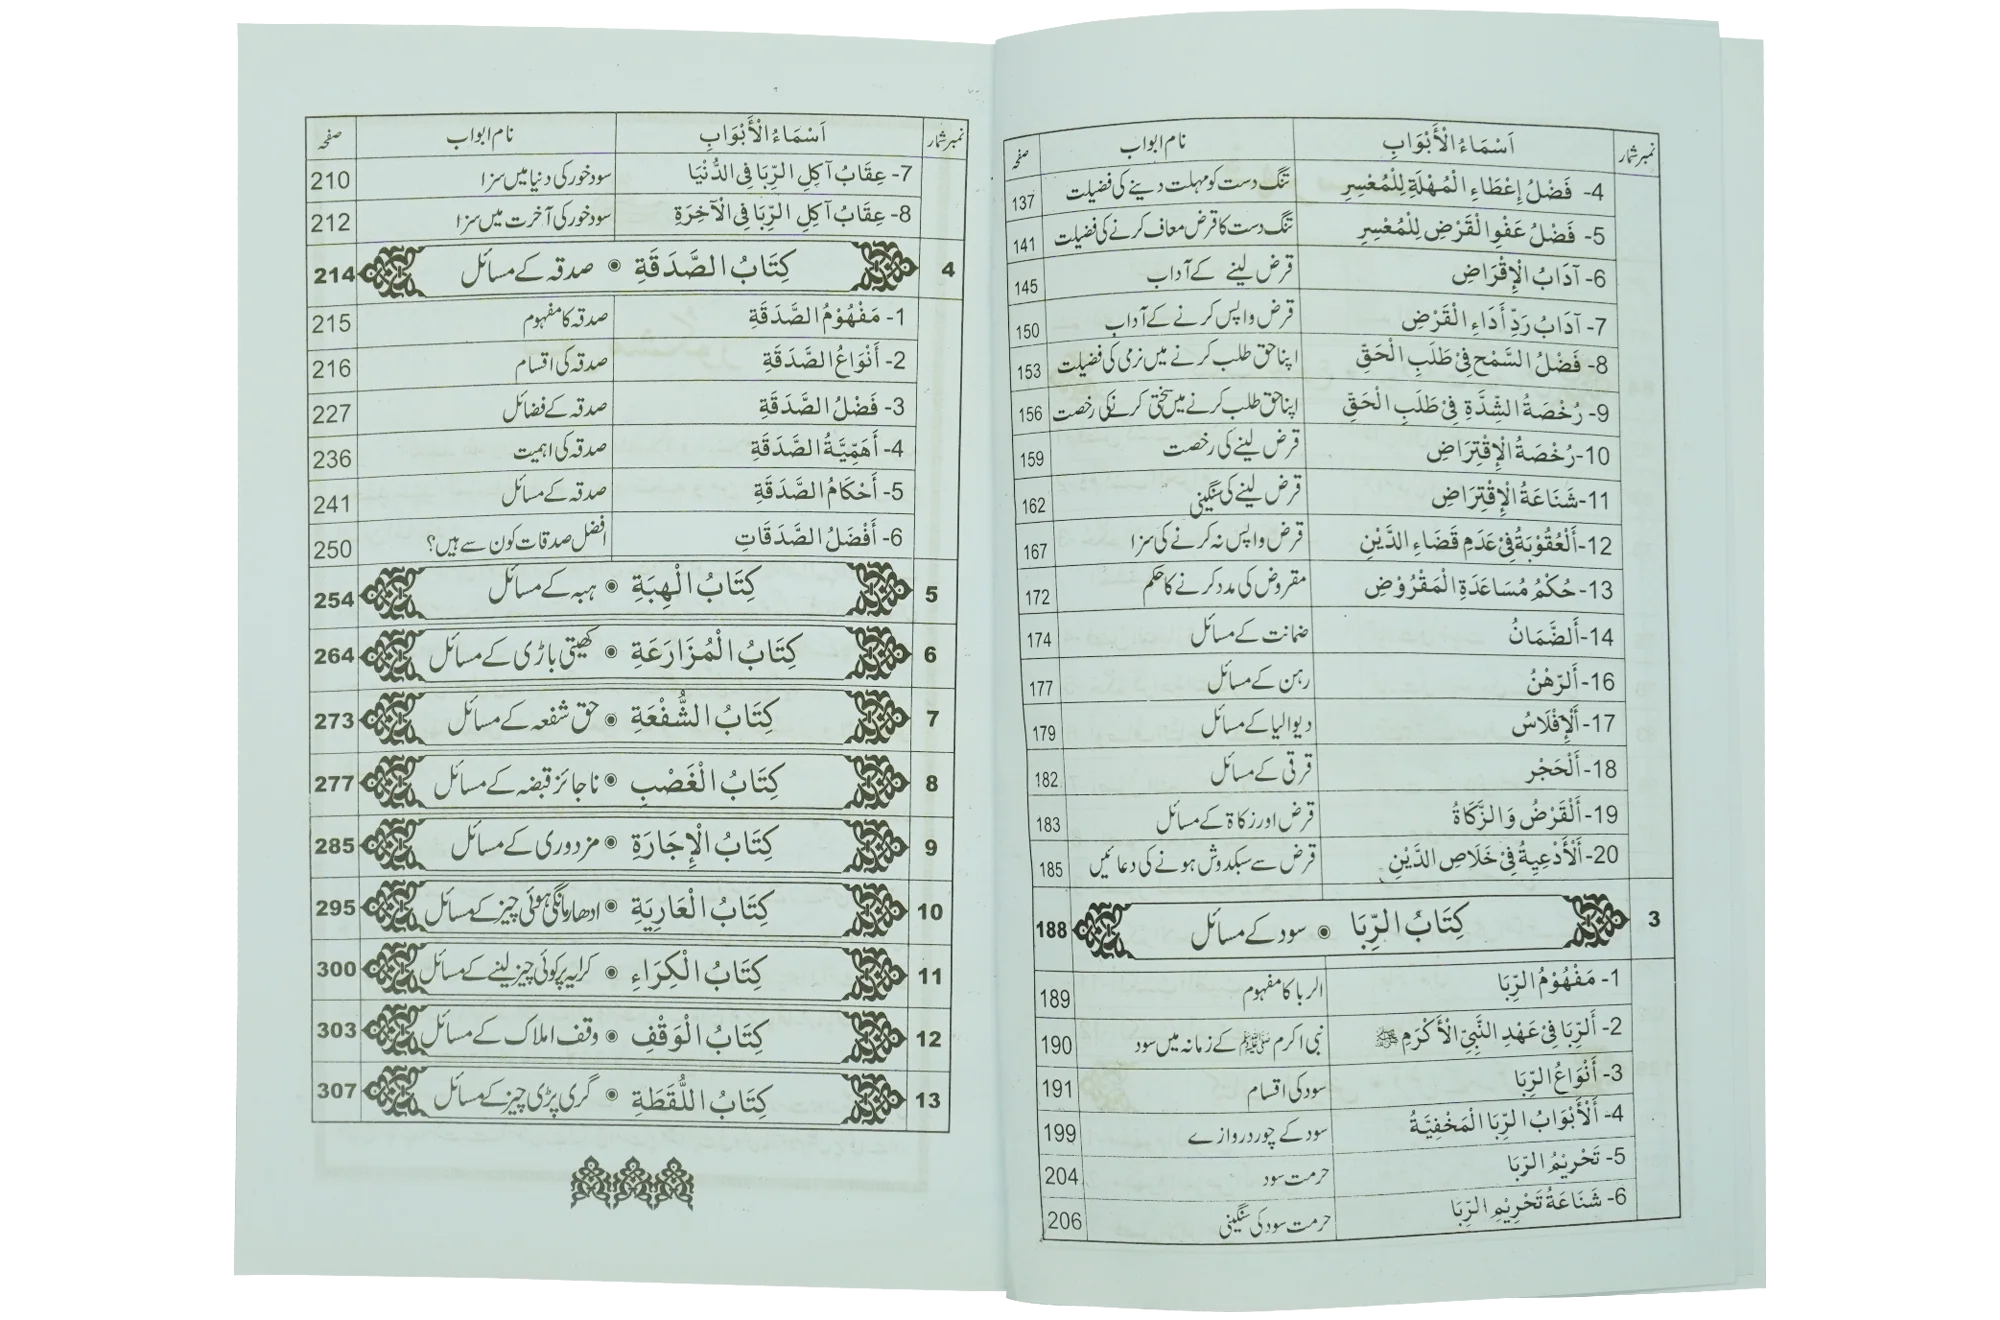 نمبرشمار اَسْمَاءُ الْأَبْوَابِ نام ابواب صفحہ
4- فَضْلُ إِعْطَاءِ الْمُهْلَةِ لِلْمُعْسِرِ تنگ دست کو مہلت دینے کی فضیلت 137
5- فَضْلُ عَفْوِ الْقَرْضِ لِلْمُعْسِرِ تنگ دست کا قرض معاف کرنے کی فضیلت 141
6- آدَابُ الْإِقْرَاضِ قرض لینے کے آداب 145
7- آدَابُ رَدِّ أَدَاءِ الْقَرْضِ قرض واپس کرنے کے آداب 150
8- فَضْلُ السَّمْحِ فِیْ طَلَبِ الْحَقِّ اپنا حق طلب کرنے میں نرمی کی فضیلت 153
9- رُخْصَةُ الشِّدَّةِ فِیْ طَلَبِ الْحَقِّ اپنا حق طلب کرنے میں سختی کرنے کی رخصت 156
10- رُخْصَةُ الْإِقْتِرَاضِ قرض لینے کی رخصت 159
11- شَنَاعَةُ الْإِقْتِرَاضِ قرض لینے کی سنگینی 162
12- اَلْعُقُوْبَةُ فِیْ عَدَمِ قَضَاءِ الدَّیْنِ قرض واپس نہ کرنے کی سزا 167
13- حُكْمُ مُسَاعَدَةِ الْمَقْرُوْضِ مقروض کی مدد کرنے کا حکم 172
14- اَلضَّمَانُ ضمانت کے مسائل 174
16- اَلرَّهْنُ رہن کے مسائل 177
17- اَلْإِفْلَاسُ دیوالیا کے مسائل 179
18- اَلْحَجْر قرقی کے مسائل 182
19- اَلْقَرْضُ وَالزَّكَاةُ قرض اور زکاة کے مسائل 183
20- اَلْأَدْعِيَةُ فِیْ خَلَاصِ الدَّیْنِ قرض سے سبکدوش ہونے کی دعائیں 185
3 كِتَابُ الرِّبَا ◉ سود کے مسائل 188
1- مَفْهُوْمُ الرِّبَا الربا کا مفہوم 189
2- اَلرِّبَا فِیْ عَهْدِ النَّبِیِّ الْأَكْرَمِ ﷺ نبی اکرم ﷺ کے زمانہ میں سود 190
3- أَنْوَاعُ الرِّبَا سود کی اقسام 191
4- اَلْأَبْوَابُ الرِّبَا الْمَخْفِيَّةُ سود کے چور دروازے 199
5- تَحْرِيْمُ الرِّبَا حرمت سود 204
6- شَنَاعَةُ تَحْرِيْمِ الرِّبَا حرمت سود کی سنگینی 206
نمبرشمار اَسْمَاءُ الْأَبْوَابِ نام ابواب صفحہ
7- عِقَابُ آكِلِ الرِّبَا فِی الدُّنْيَا سود خور کی دنیا میں سزا 210
8- عِقَابُ آكِلِ الرِّبَا فِی الْآخِرَةِ سود خور کی آخرت میں سزا 212
4 كِتَابُ الصَّدَقَةِ ◉ صدقہ کے مسائل 214
1- مَفْهُوْمُ الصَّدَقَةِ صدقہ کا مفہوم 215
2- أَنْوَاعُ الصَّدَقَةِ صدقہ کی اقسام 216
3- فَضْلُ الصَّدَقَةِ صدقہ کے فضائل 227
4- أَهَمِّيَّةُ الصَّدَقَةِ صدقہ کی اہمیت 236
5- أَحْكَامُ الصَّدَقَةِ صدقہ کے مسائل 241
6- أَفْضَلُ الصَّدَقَاتِ افضل صدقات کون سے ہیں؟ 250
5 كِتَابُ الْهِبَةِ ◉ ہبہ کے مسائل 254
6 كِتَابُ الْمُزَارَعَةِ ◉ کھیتی باڑی کے مسائل 264
7 كِتَابُ الشُّفْعَةِ ◉ حق شفعہ کے مسائل 273
8 كِتَابُ الْغَصْبِ ◉ ناجائز قبضہ کے مسائل 277
9 كِتَابُ الْإِجَارَةِ ◉ مزدوری کے مسائل 285
10 كِتَابُ الْعَارِيَةِ ◉ ادھار مانگی ہوئی چیز کے مسائل 295
11 كِتَابُ الْكِرَاءِ ◉ کرایہ پر کوئی چیز لینے کے مسائل 300
12 كِتَابُ الْوَقْفِ ◉ وقف املاک کے مسائل 303
13 كِتَابُ اللُّقَطَةِ ◉ گری پڑی چیز کے مسائل 307